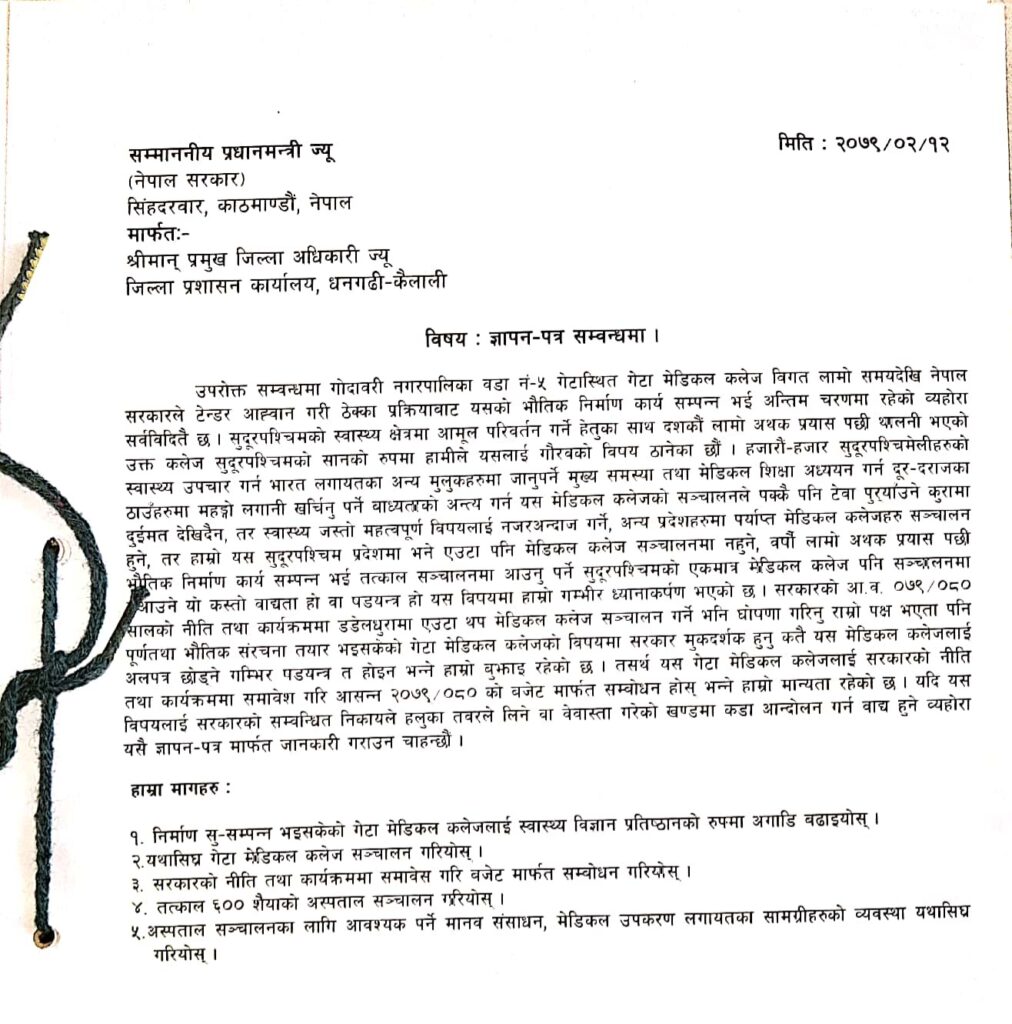 मिति : २०७९/०२/१२
सम्माननीय प्रधानमन्त्री ज्यू
(नेपाल सरकार)
सिंहदरवार, काठमाण्डौं, नेपाल
मार्फतः-
श्रीमान् प्रमुख जिल्ला अधिकारी ज्यू
जिल्ला प्रशासन कार्यालय, धनगढी-कैलाली
विषय : ज्ञापन-पत्र सम्वन्धमा ।
उपरोक्त सम्वन्धमा गोदावरी नगरपालिका वडा नं-५ गेटास्थित गेटा मेडिकल कलेज विगत लामो समयदेखि नेपाल
सरकारले टेन्डर आह्वान गरी ठेक्का प्रक्रियावाट यसको भौतिक निर्माण कार्य सम्पन्न भई अन्तिम चरणमा रहेको व्यहोरा
सर्वविदितै छ । सुदूरपश्चिमको स्वास्थ्य क्षेत्रमा आमूल परिवर्तन गर्ने हेतुका साथ दशकौं लामो अथक प्रयास पछी थालनी भएको
उक्त कलेज सुदूरपश्चिमको सानको रुपमा हामीले यसलाई गौरवको विषय ठानेका छौं । हजारौं-हजार सुदूरपश्चिमेलीहरुको
स्वास्थ्य उपचार गर्न भारत लगायतका अन्य मुलुकहरुमा जानुपर्ने मुख्य समस्या तथा मेडिकल शिक्षा अध्ययन गर्न दूर-दराजका
ठाउँहरुमा महङ्गो लगानी खर्चिनु पर्ने बाध्यताको अन्त्य गर्न यस मेडिकल कलेजको सञ्चालनले पक्कै पनि टेवा पुर्‍याउने कुरामा
दुईमत देखिदैन, तर स्वास्थ्य जस्तो महत्वपूर्ण विषयलाई नजरअन्दाज गर्ने, अन्य प्रदेशहरुमा पर्याप्त मेडिकल कलेजहरु सञ्चालन
हुने, तर हाम्रो यस सुदूरपश्चिम प्रदेशमा भने एउटा पनि मेडिकल कलेज सञ्चालनमा नहुने, वर्षौं लामो अथक प्रयास पछी
भौतिक निर्माण कार्य सम्पन्न भई तत्काल सञ्चालनमा आउनु पर्ने सुदूरपश्चिमको एकमात्र मेडिकल कलेज पनि सञ्चालनमा
आउने यो कस्तो वाद्यता हो वा षडयन्त्र हो यस विषयमा हाम्रो गम्भीर ध्यानाकर्षण भएको छ । सरकारको आ.व. ०७९/०८०
सालको नीति तथा कार्यक्रममा डडेलधुरामा एउटा थप मेडिकल कलेज सञ्चालन गर्ने भनि घोषणा गरिनु राम्रो पक्ष भएता पनि
पूर्णतया भौतिक संरचना तयार भइसकेको गेटा मेडिकल कलेजको विषयमा सरकार मुकदर्शक हुनु कतै यस मेडिकल कलेजलाई
अलपत्र छोड्ने गम्भिर षडयन्त्र त होइन भन्ने हाम्रो बुझाइ रहेको छ । तसर्थ यस गेटा मेडिकल कलेजलाई सरकारको नीति
तथा कार्यक्रममा समावेश गरि आसन्न २०७९/०८० को बजेट मार्फत सम्बोधन होस् भन्ने हाम्रो मान्यता रहेको छ । यदि यस
विषयलाई सरकारको सम्वन्धित निकायले हलुका तवरले लिने वा वेवास्ता गरेको खण्डमा कडा आन्दोलन गर्न वाद्य हुने व्यहोरा
यसै ज्ञापन-पत्र मार्फत जानकारी गराउन चाहन्छौं ।
हाम्रा मागहरु :
१. निर्माण सु-सम्पन्न भइसकेको गेटा मेडिकल कलेजलाई स्वास्थ्य विज्ञान प्रतिष्ठानको रुपमा अगाडि बढाइयोस् ।
२.यथासिघ्र गेटा मेडिकल कलेज सञ्चालन गरियोस् ।
३. सरकारको नीति तथा कार्यक्रममा समावेस गरि वजेट मार्फत सम्बोधन गरियोस् ।
४. तत्काल ६०० शैयाको अस्पताल सञ्चालन गरियोस् ।
५.अस्पताल सञ्चालनका लागि आवश्यक पर्ने मानव संसाधन, मेडिकल उपकरण लगायतका सामग्रीहरुको व्यवस्था यथासिघ्र
गरियोस् ।